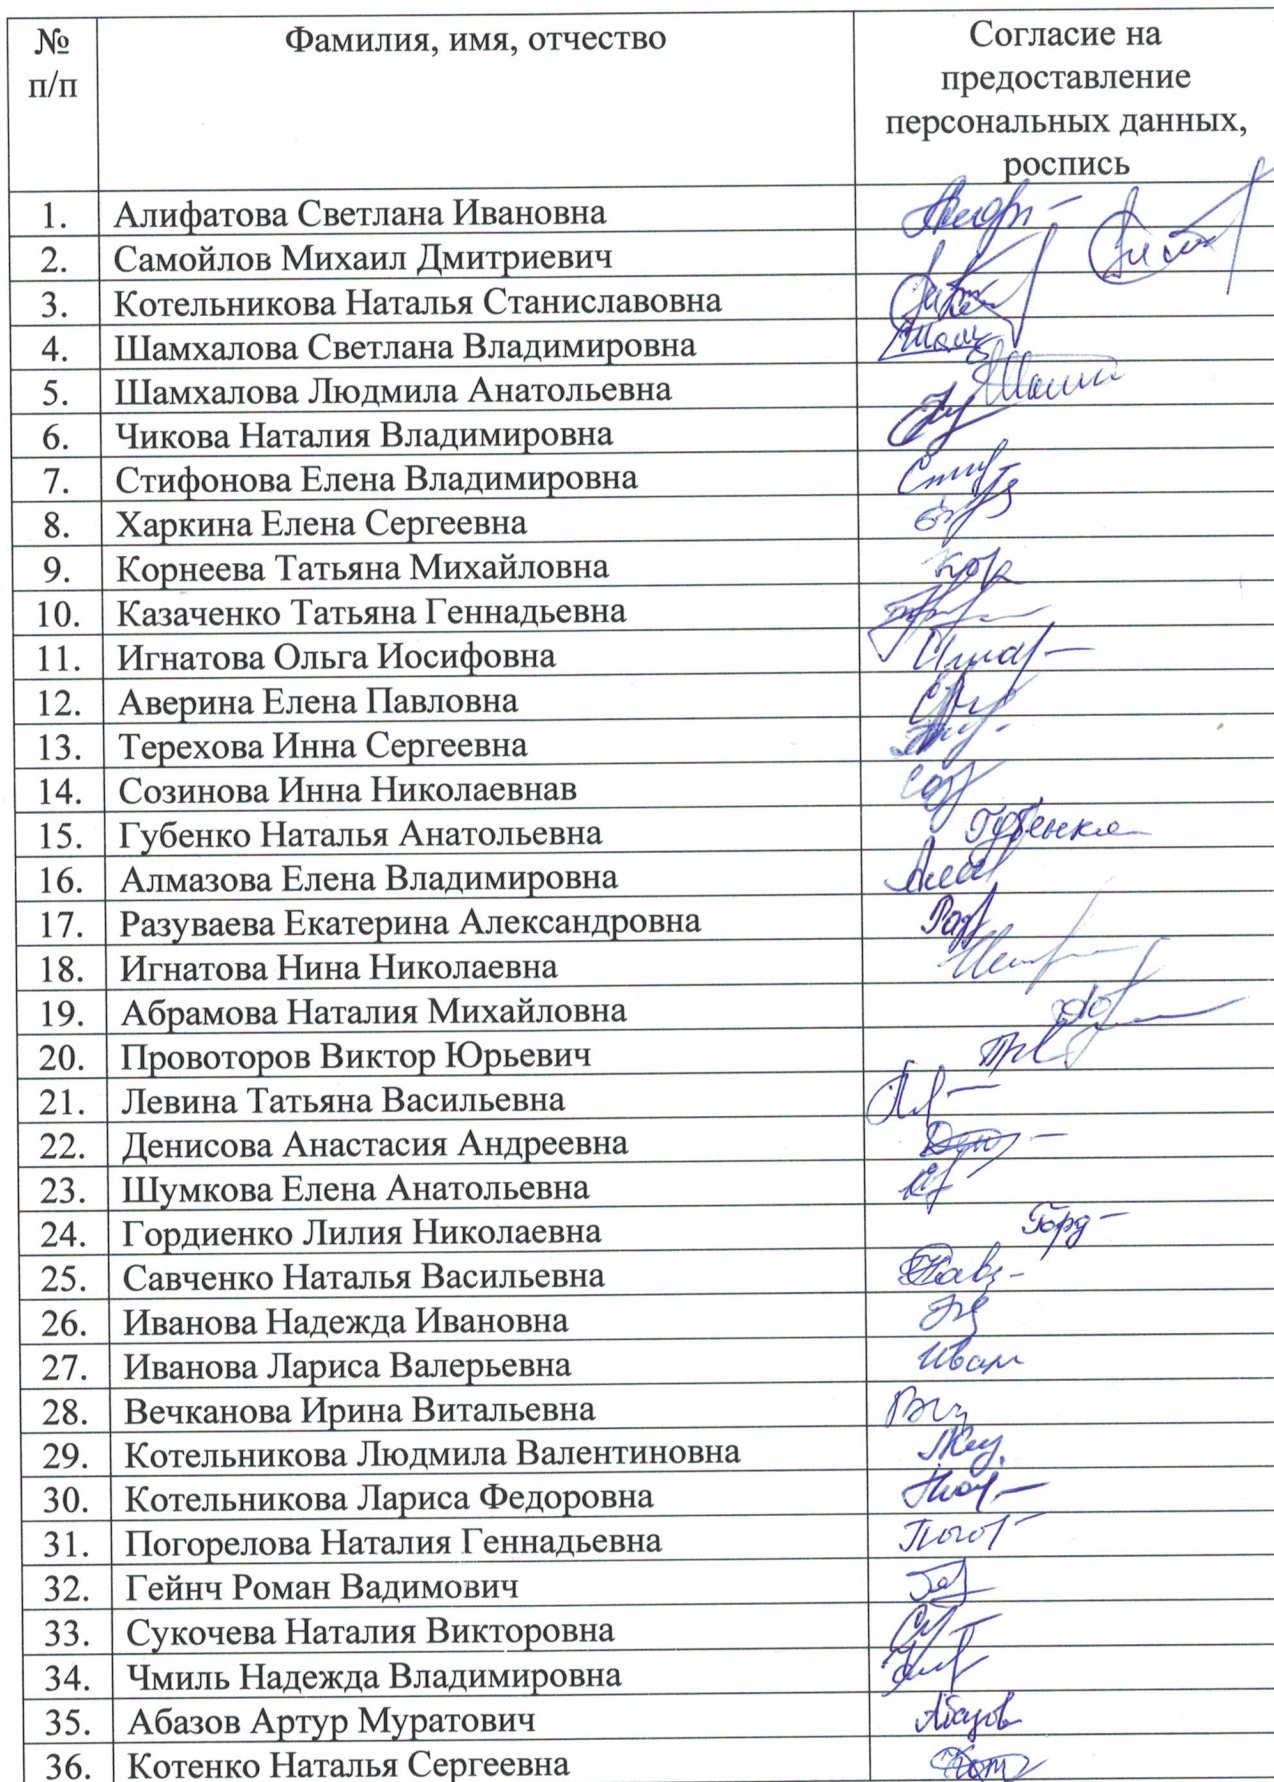 № п/п Фамилия, имя, отчество Согласие на
предоставление
персональных данных,
роспись
1. Алифатова Светлана Ивановна
2. Самойлов Михаил Дмитриевич
3. Котельникова Наталья Станиславовна
4. Шамхалова Светлана Владимировна
5. Шамхалова Людмила Анатольевна
6. Чикова Наталия Владимировна
7. Стифонова Елена Владимировна
8. Харкина Елена Сергеевна
9. Корнеева Татьяна Михайловна
10. Казаченко Татьяна Геннадьевна
11. Игнатова Ольга Иосифовна
12. Аверина Елена Павловна
13. Терехова Инна Сергеевна
14. Созинова Инна Николаевнав
15. Губенко Наталья Анатольевна
16. Алмазова Елена Владимировна
17. Разуваева Екатерина Александровна
18. Игнатова Нина Николаевна
19. Абрамова Наталия Михайловна
20. Провоторов Виктор Юрьевич
21. Левина Татьяна Васильевна
22. Денисова Анастасия Андреевна
23. Шумкова Елена Анатольевна
24. Гордиенко Лилия Николаевна Горд
25. Савченко Наталья Васильевна
26. Иванова Надежда Ивановна
27. Иванова Лариса Валерьевна Иван
28. Вечканова Ирина Витальевна
29. Котельникова Людмила Валентиновна
30. Котельникова Лариса Федоровна
31. Погорелова Наталия Геннадьевна
32. Гейнч Роман Вадимович
33. Сукочева Наталия Викторовна
34. Чмиль Надежда Владимировна
35. Абазов Артур Муратович Абазов
36. Котенко Наталья Сергеевна